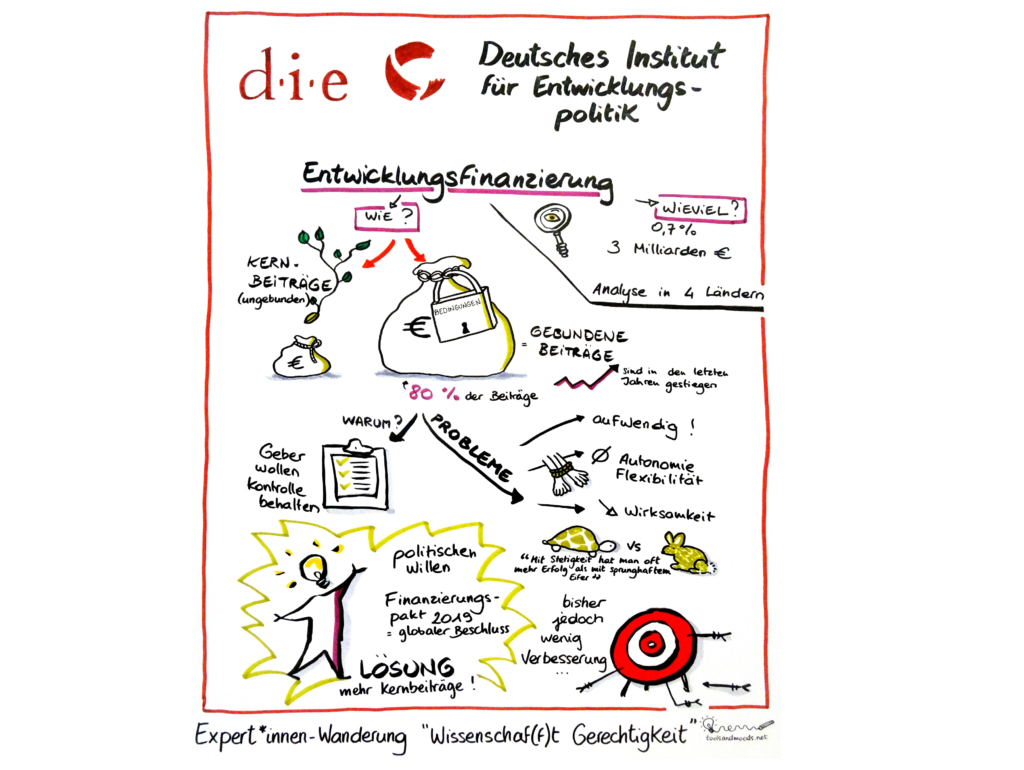 d·i·e
Deutsches Institut
für Entwicklungs-
politik
Entwicklungsfinanzierung
WIE?
WIEVIEL?
0,7%
3 Milliarden €
Analyse in 4 Ländern
KERN-
BEITRÄGE
(ungebunden)
€
BEDINGUNGEN
€
= GEBUNDENE
BEITRÄGE
sind in den letzten
Jahren gestiegen
80 % der Beiträge
WARUM?
Geber
wollen
kontrolle
behalten
PROBLEME
aufwendig!
Ø Autonomie
Flexibilität
Wirksamkeit
vs
"Mit Stetigkeit hat man oft
mehr Erfolg als mit sprunghaftem
Eifer"
politischen
Willen
Finanzierungs-
pakt 2019
= globaler Beschluss
LÖSUNG
mehr Kernbeiträge!
bisher
jedoch
wenig
Verbesserung
...
Expert*innen-Wanderung "Wissenschaf(f)t Gerechtigkeit"
toolsandmoods.net